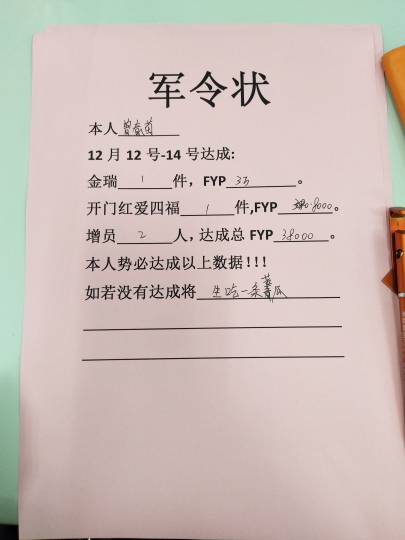 军令状
本人曾春菊
12月12号-14号达成:
金瑞 1 件，FYP 3万 。
开门红爱四福 1 件,FYP 8000 。
增员 2 人，达成总 FYP 38000 。
本人势必达成以上数据！！！
如若没有达成将 生吃一条苦瓜